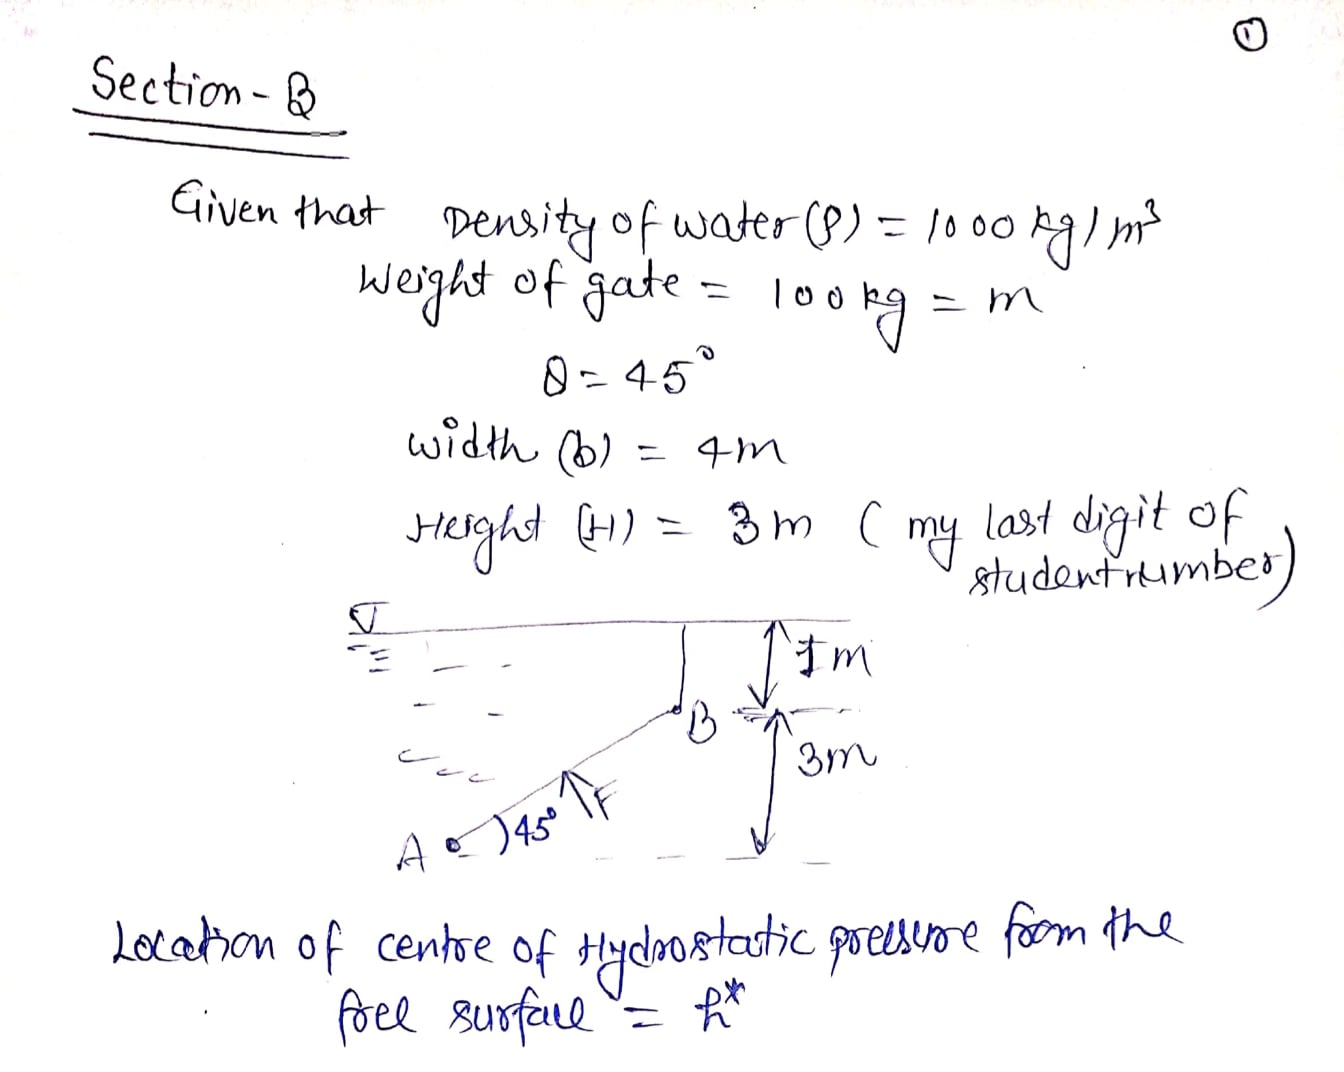 ①
Section - B
Given that Density of water (ρ) = 1000 kg/m³
Weight of gate = 100 kg = m
θ = 45°
width (b) = 4m
Height (H) = 3m ( my last digit of
student number)
1m
B
3m
F
A 45°
Location of centre of Hydrostatic pressure from the
free surface = h*